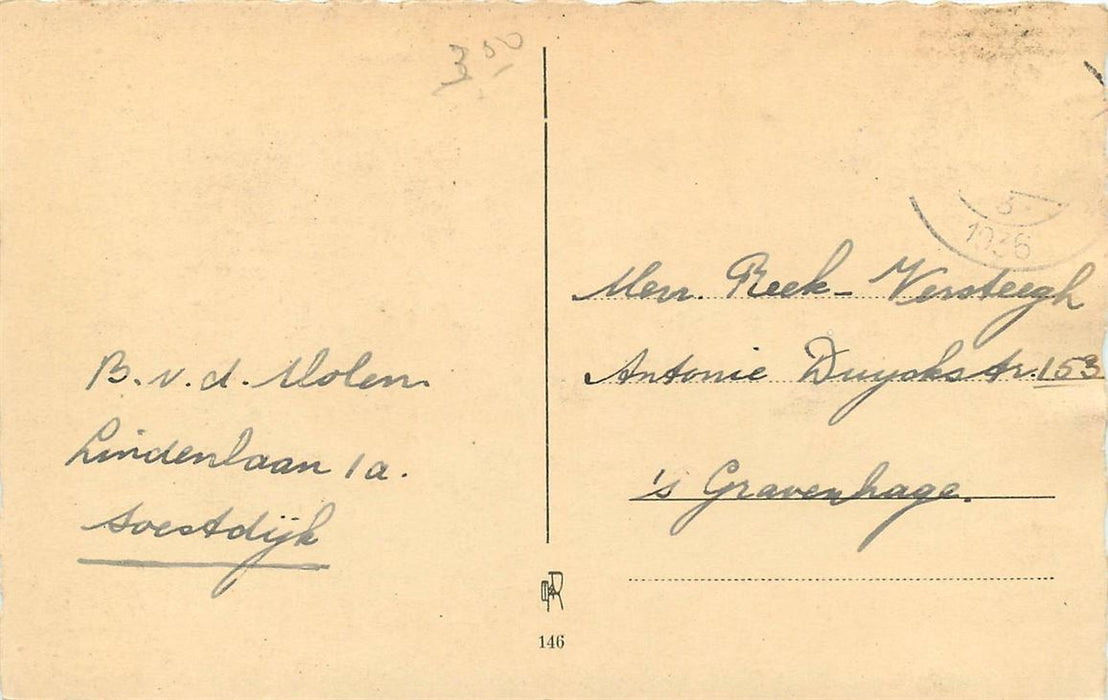 3.00
B. v. d. Molen.
Lindenlaan 1a.
Soestdijk
146
3.
1936
Mevr. Reek - Versteegh
Antonie Duyckstr. 153
's Gravenhage.